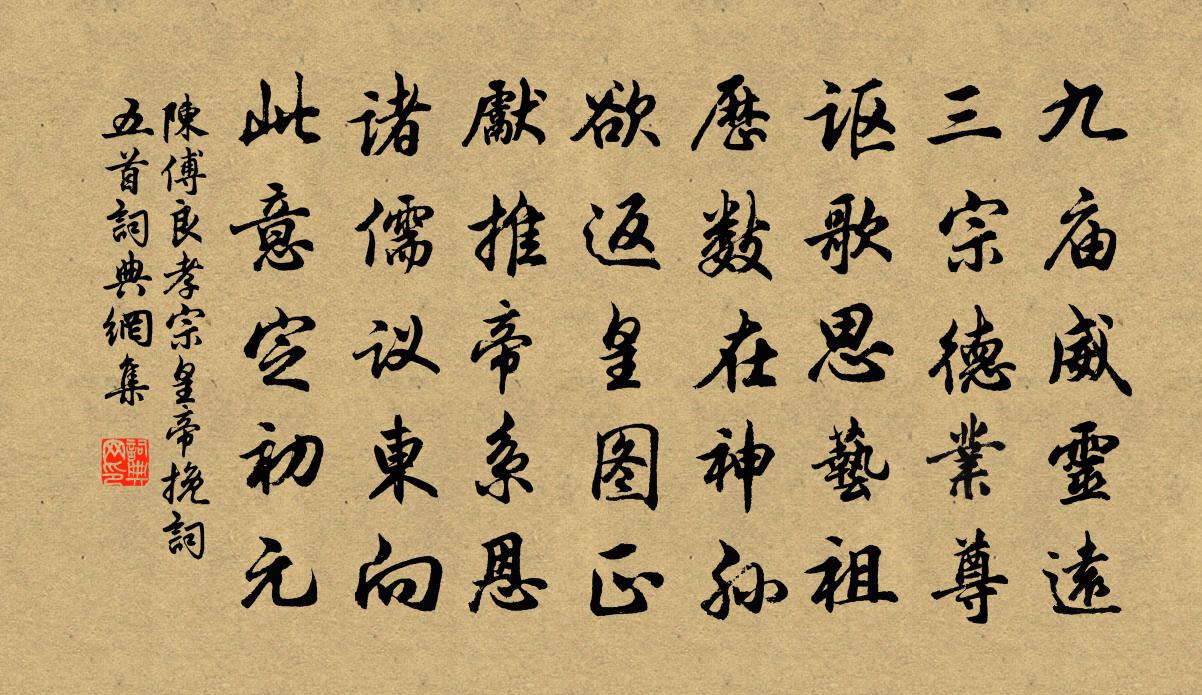 九庙威靈遠
三宗德業尊
讴歌思藝祖
歷數在神孫
欲返皇图正
獻推帝系恩
诸儒议東向
此意定初元
陳傅良孝宗皇帝挽詞
五首詞典網集
詞典网印